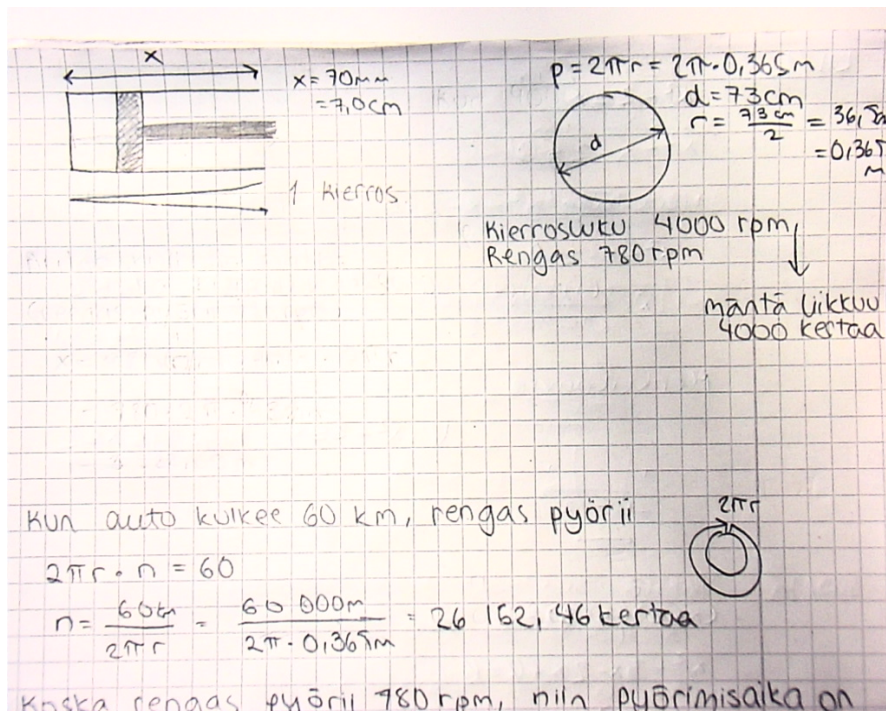 x
x = 70mm
= 7,0cm
1 kierros
p = 2πr = 2π · 0,365m
d = 73cm
r = 73cm/2 = 36,5cm
= 0,365
m
d
Kierrosluku 4000 rpm
Rengas 780 rpm
mäntä liikkuu
4000 kertaa
Kun auto kulkee 60 km, rengas pyörii
2πr
2πr · n = 60
n = 60km/2πr = 60 000m/2π · 0,365m = 26 162,46 kertaa
Koska rengas pyörii 780 rpm, niin pyörimisaika on